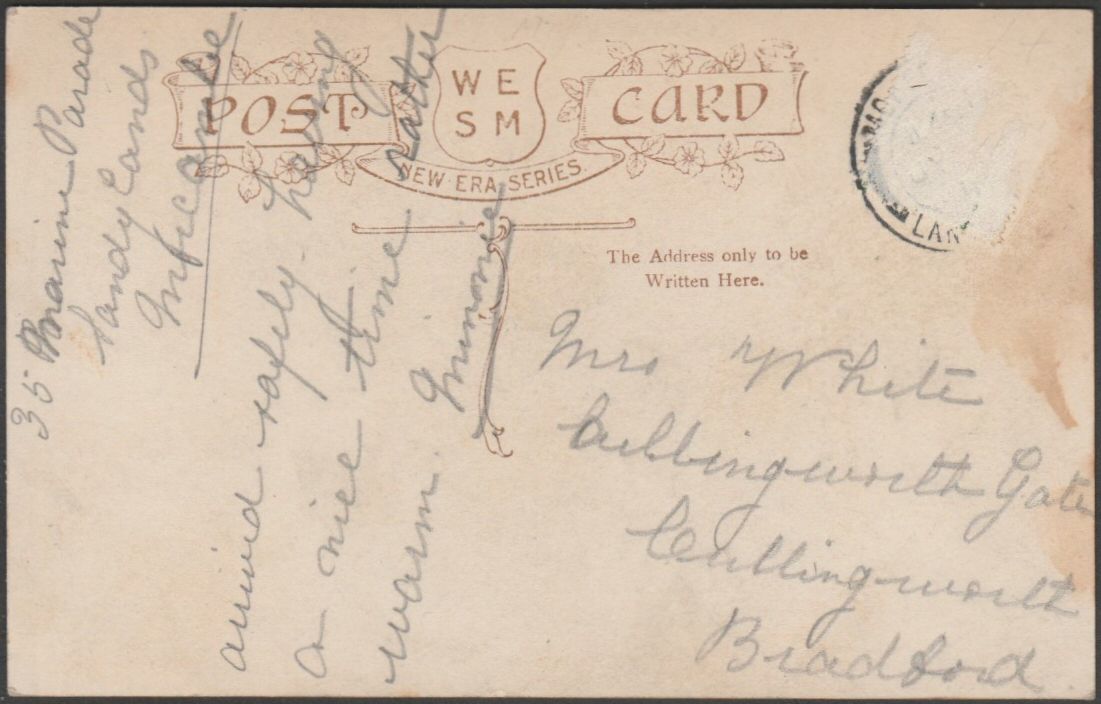 POST CARD
WE
SM
NEW ERA SERIES.
The Address only to be
Written Here.
LAN
35 Marine Parade
Sandy Lands
Morecambe
arrived safely. having
a nice time rather
warm. Minnie
Mrs White
Cullingworth Gate
Cullingworth
Bradford